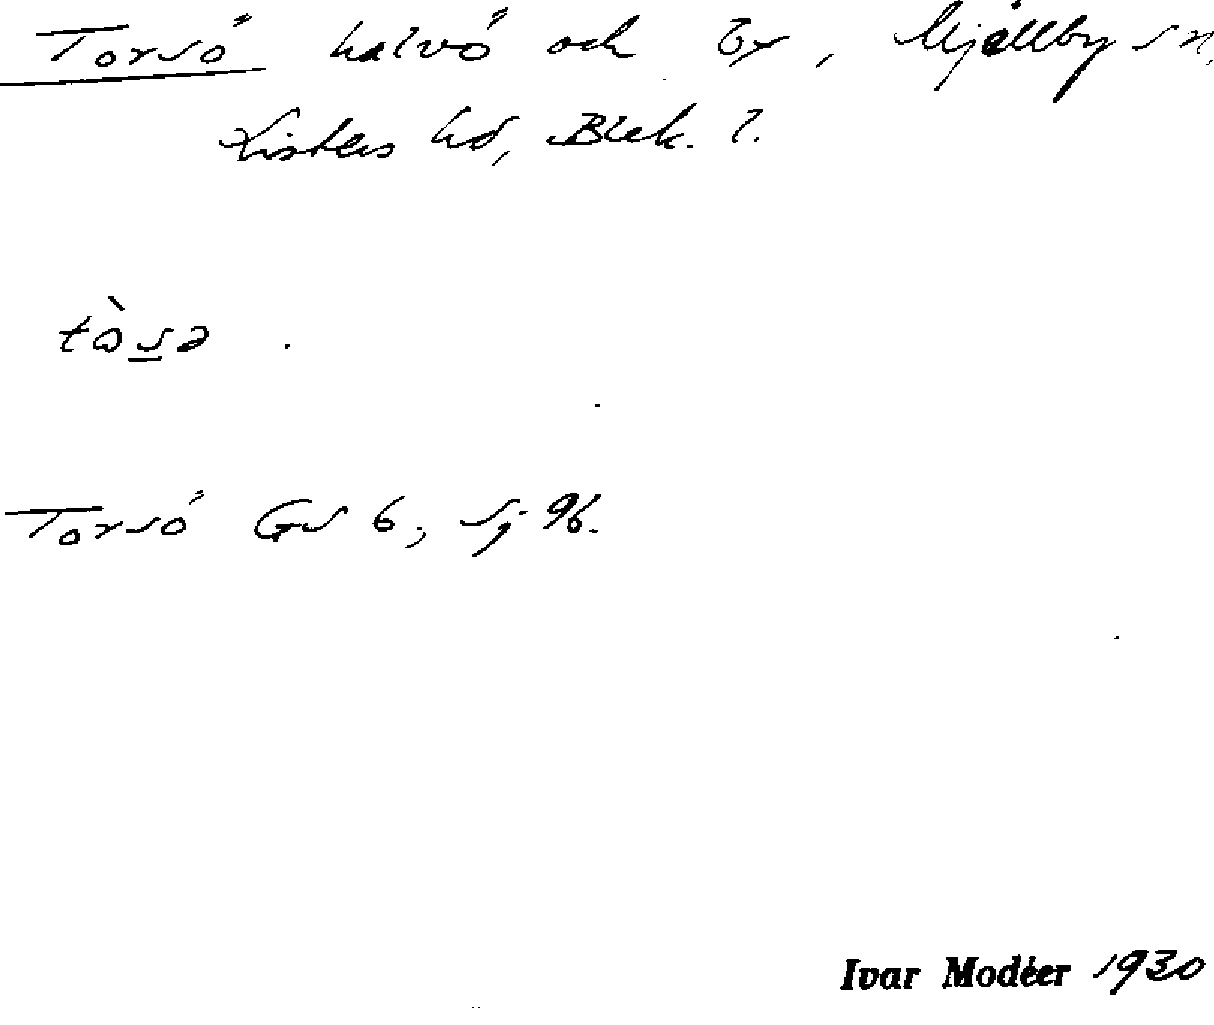 Torsö halvö och by, Mjällby sn,
Listers hd, Blek. l.
tòsə .
Torsö GS 6, Sj 96.
Ivar Modéer 1930